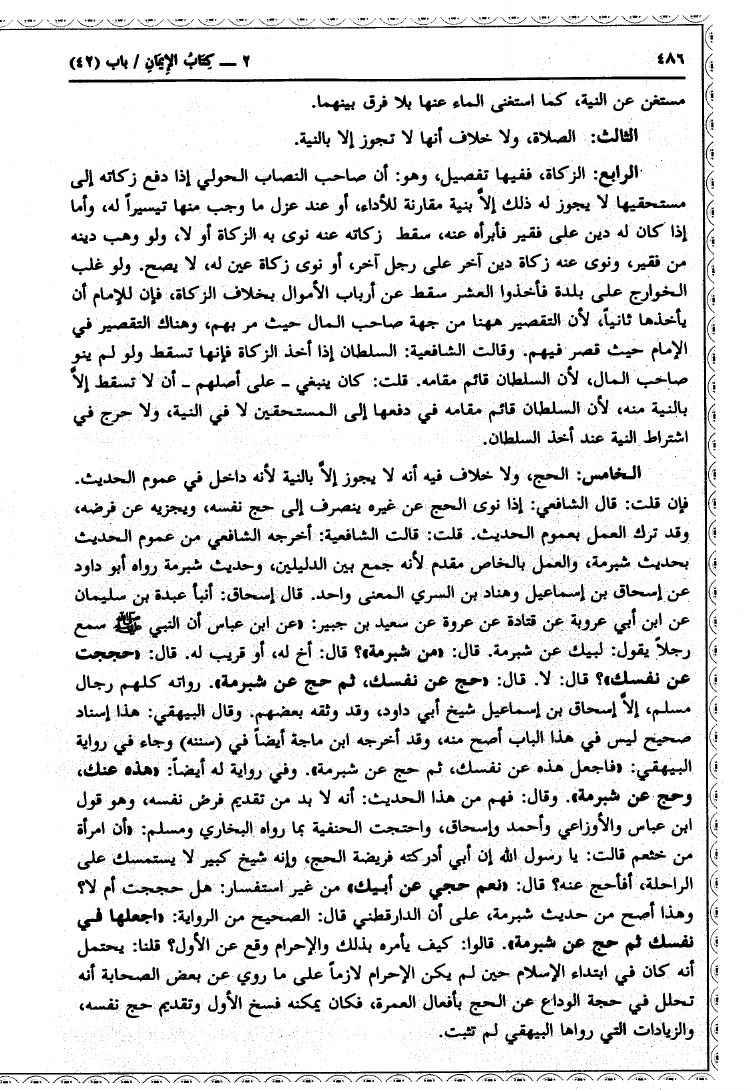 ٤٨٦
٢ ــ كِتَابُ الإِيمَانِ / باب (٤٢)
مستغن عن النية، كما استغنى الماء عنها بلا فرق بينهما.
الثالث: الصلاة، ولا خلاف أنها لا تجوز إلا بالنية.
الرابع: الزكاة، ففيها تفصيل، وهو: أن صاحب النصاب الحولي إذا دفع زكاته إلى
مستحقيها لا يجوز له ذلك إلاَّ بنية مقارنة للأداء، أو عند عزل ما وجب منها تيسيراً له، وأما
إذا كان له دين على فقير فأبرأه عنه، سقط زكاته عنه نوى به الزكاة أو لا، ولو وهب دينه
من فقير، ونوى عنه زكاة دين آخر على رجل آخر، أو نوى زكاة عين له، لا يصح. ولو غلب
الخوارج على بلدة فأخذوا العشر سقط عن أرباب الأموال بخلاف الزكاة، فإن للإمام أن
يأخذها ثانياً، لأن التقصير ههنا من جهة صاحب المال حيث مر بهم، وهناك التقصير في
الإمام حيث قصر فيهم. وقالت الشافعية: السلطان إذا أخذ الزكاة فإنها تسقط ولو لم ينو
صاحب المال، لأن السلطان قائم مقامه. قلت: كان ينبغي ـ على أصلهم ـ أن لا تسقط إلاَّ
بالنية منه، لأن السلطان قائم مقامه في دفعها إلى المستحقين لا في النية، ولا حرج في
اشتراط النية عند أخذ السلطان.
الخامس: الحج، ولا خلاف فيه أنه لا يجوز إلاَّ بالنية لأنه داخل في عموم الحديث.
فإن قلت: قال الشافعي: إذا نوى الحج عن غيره ينصرف إلى حج نفسه، ويجزيه عن فرضه،
وقد ترك العمل بعموم الحديث. قلت: قالت الشافعية: أخرجه الشافعي من عموم الحديث
بحديث شبرمة، والعمل بالخاص مقدم لأنه جمع بين الدليلين، وحديث شبرمة رواه أبو داود
عن إسحاق بن إسماعيل وهناد بن السري المعنى واحد. قال إسحاق: أنبأ عبدة بن سليمان
عن ابن أبي عروبة عن قتادة عن عروة عن سعيد بن جبير: «عن ابن عباس أن النبي ﷺ سمع
رجلاً يقول: لبيك عن شبرمة. قال: «من شبرمة»؟ قال: أخ له، أو قريب له. قال: «حججت
عن نفسك»؟ قال: لا. قال: «حج عن نفسك، ثم حج عن شبرمة». رواته كلهم رجال
مسلم، إلاَّ إسحاق بن إسماعيل شيخ أبي داود، وقد وثقه بعضهم. وقال البيهقي: هذا إسناد
صحيح ليس في هذا الباب أصح منه، وقد أخرجه ابن ماجة أيضاً في (سننه) وجاء في رواية
البيهقي: «فاجعل هذه عن نفسك، ثم حج عن شبرمة». وفي رواية له أيضاً: «هذه عنك،
وحج عن شبرمة». وقال: فهم من هذا الحديث: أنه لا بد من تقديم فرض نفسه، وهو قول
ابن عباس والأوزاعي وأحمد وإسحاق، واحتجت الحنفية بما رواه البخاري ومسلم: «أن امرأة
من خثعم قالت: يا رسول الله إن أبي أدركته فريضة الحج، وإنه شيخ كبير لا يستمسك على
الراحلة، أفأحج عنه؟ قال: «نعم حجي عن أبيك» من غير استفسار: هل حججت أم لا؟
وهذا أصح من حديث شبرمة، على أن الدارقطني قال: الصحيح من الرواية: «اجعلها في
نفسك ثم حج عن شبرمة». قالوا: كيف يأمره بذلك والإحرام وقع عن الأول؟ قلنا: يحتمل
أنه كان في ابتداء الإسلام حين لم يكن الإحرام لازماً على ما روي عن بعض الصحابة أنه
تحلل في حجة الوداع عن الحج بأفعال العمرة، فكان يمكنه فسخ الأول وتقديم حج نفسه،
والزيادات التي رواها البيهقي لم تثبت.